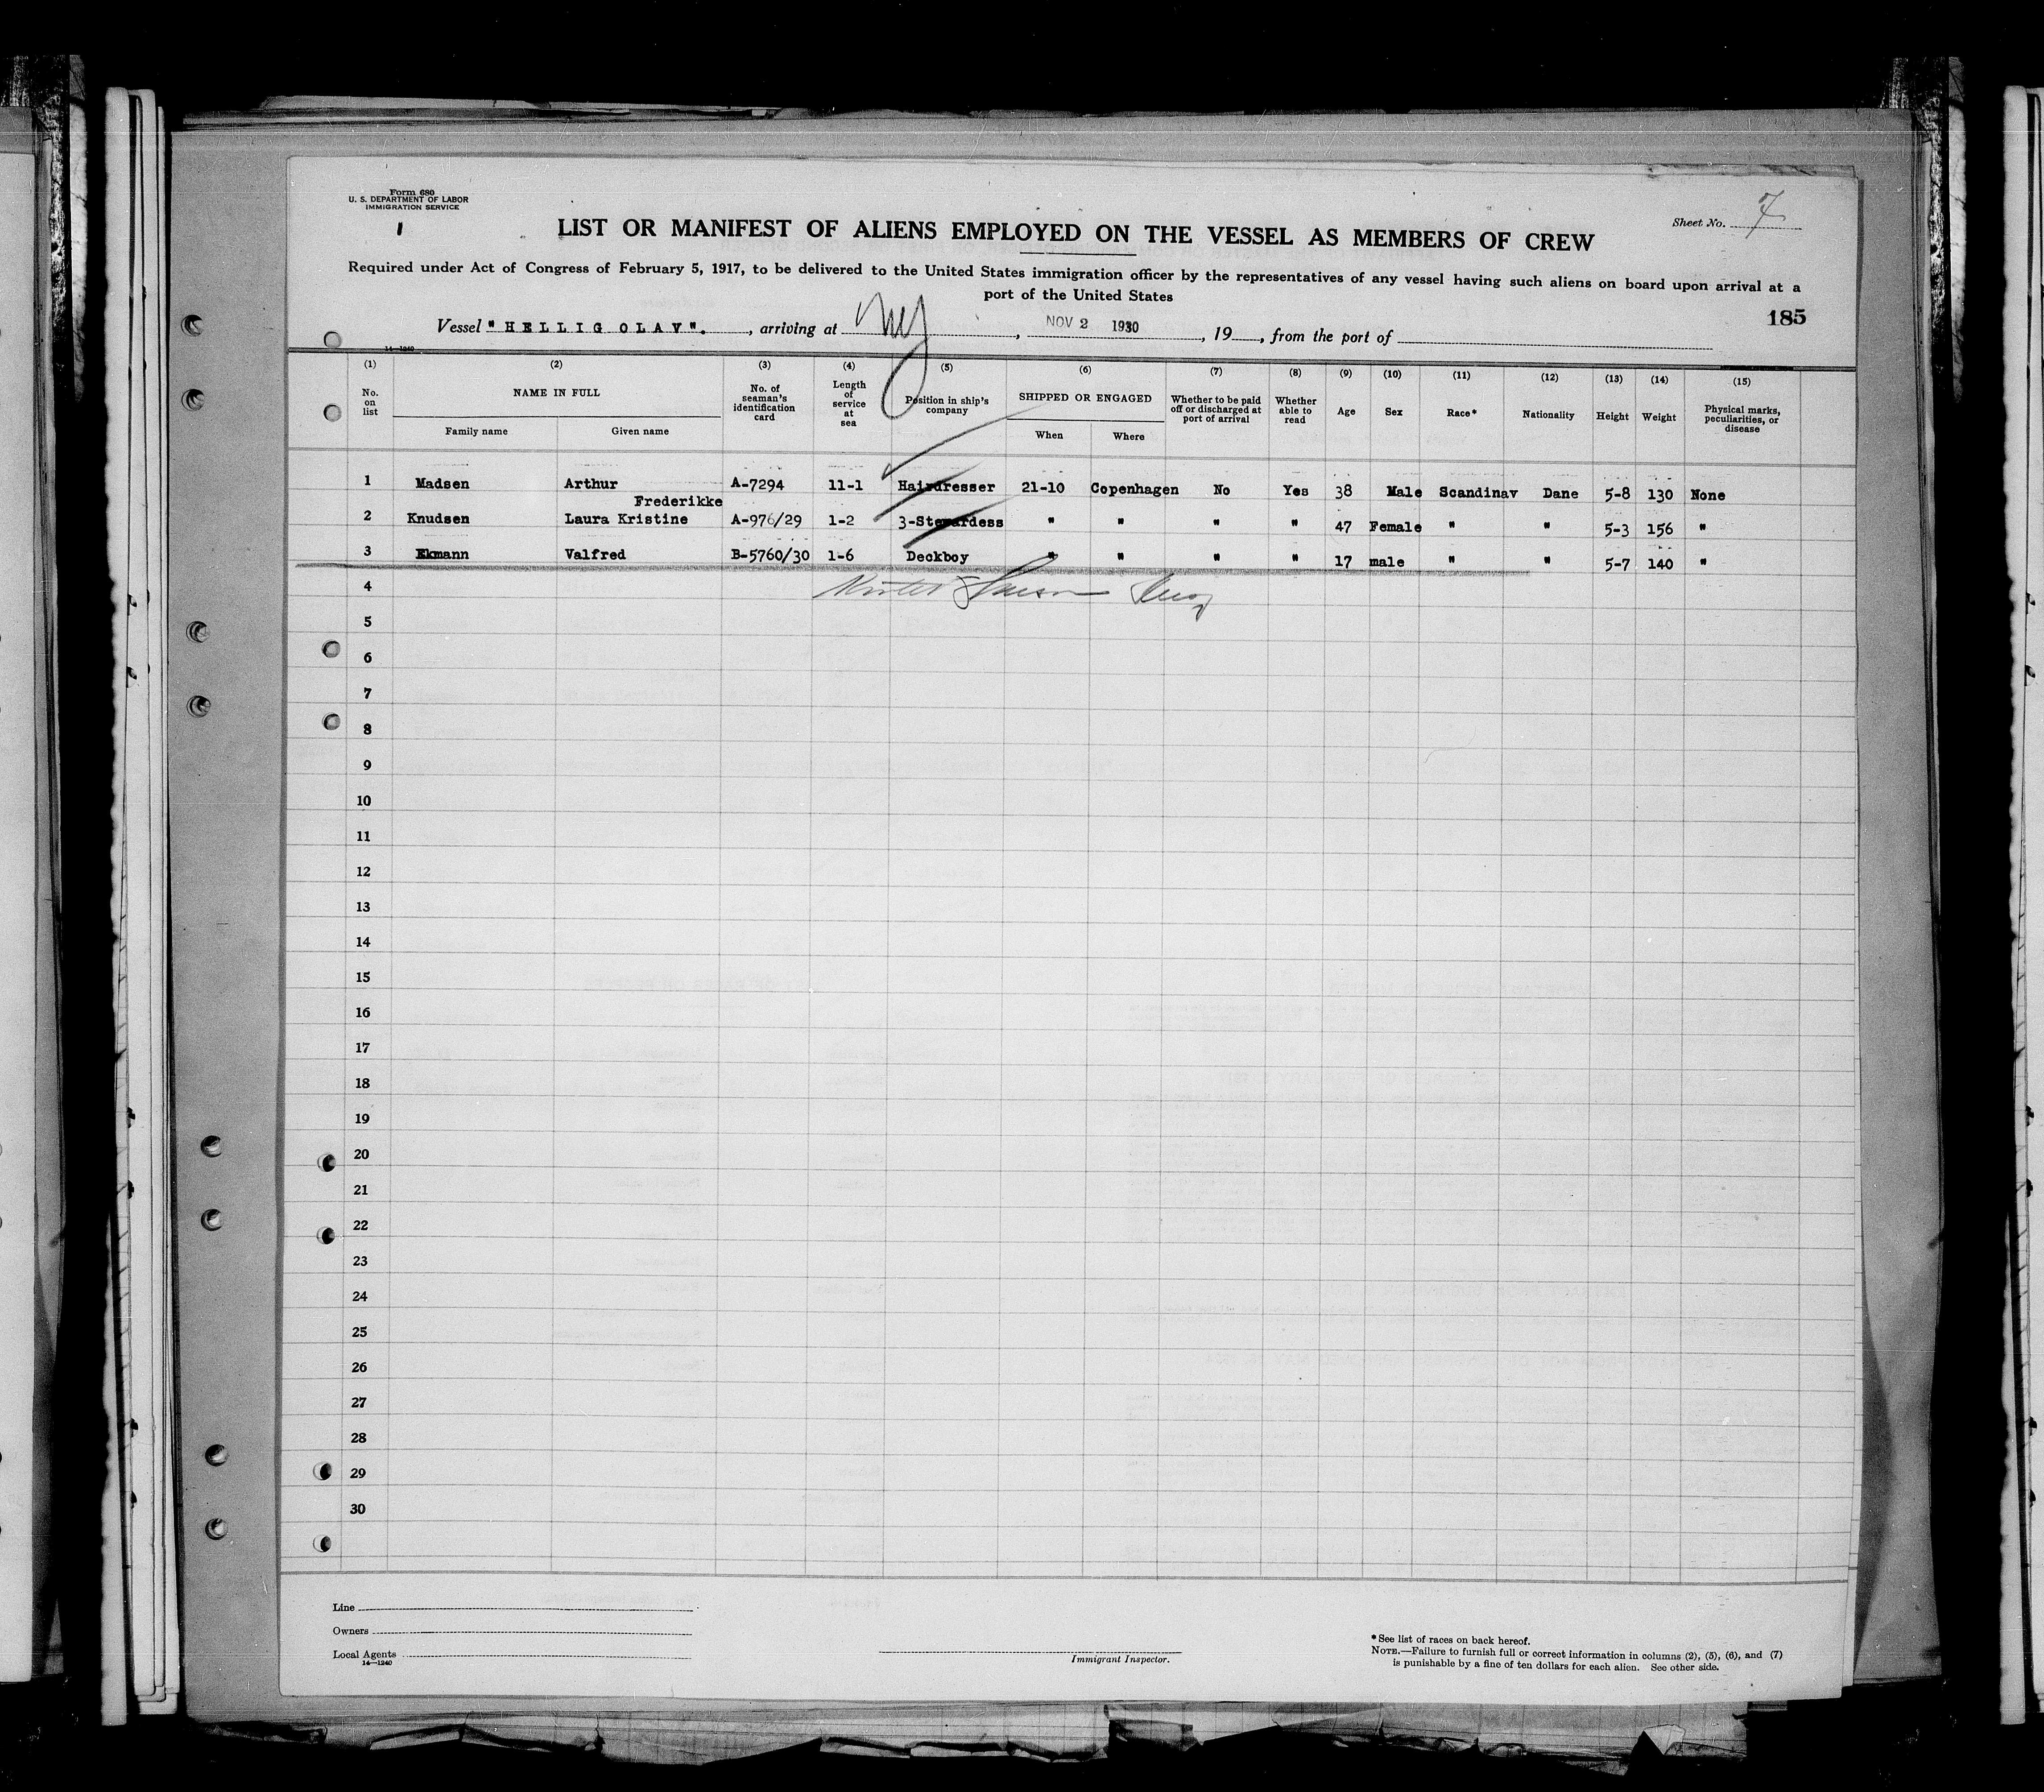 Form 680
U. S. DEPARTMENT OF LABOR
IMMIGRATION SERVICE
1
LIST OR MANIFEST OF ALIENS EMPLOYED ON THE VESSEL AS MEMBERS OF CREW
Sheet No. 7
Required under Act of Congress of February 5, 1917, to be delivered to the United States immigration officer by the representatives of any vessel having such aliens on board upon arrival at a
port of the United States
185
Vessel "HELLIG OLAV". , arriving at NY , NOV 2 1930 , 19 , from the port of
14—1240
(1) (2) (3) (4) (5) (6) (7) (8) (9) (10) (11) (12) (13) (14) (15)
No. on list
NAME IN FULL
Family name
Given name
No. of seaman's identification card
Length of service at sea
Position in ship's company
SHIPPED OR ENGAGED
When
Where
Whether to be paid off or discharged at port of arrival
Whether able to read
Age
Sex
Race*
Nationality
Height
Weight
Physical marks, peculiarities, or disease
1 Madsen Arthur A-7294 11-1 Hairdresser 21-10 Copenhagen No Yes 38 Male Scandinav Dane 5-8 130 None
Frederikke
2 Knudsen Laura Kristine A-976/29 1-2 3-Stewardess " " " " 47 Female " " 5-3 156 "
3 Ekmann Valfred B-5760/30 1-6 Deckboy " " " " 17 male " " 5-7 140 "
4
5
6
7
8
9
10
11
12
13
14
15
16
17
18
19
20
21
22
23
24
25
26
27
28
29
30
Line
Owners
Local Agents
14—1240
Immigrant Inspector.
*See list of races on back hereof.
NOTE.—Failure to furnish full or correct information in columns (2), (5), (6), and (7)
is punishable by a fine of ten dollars for each alien. See other side.